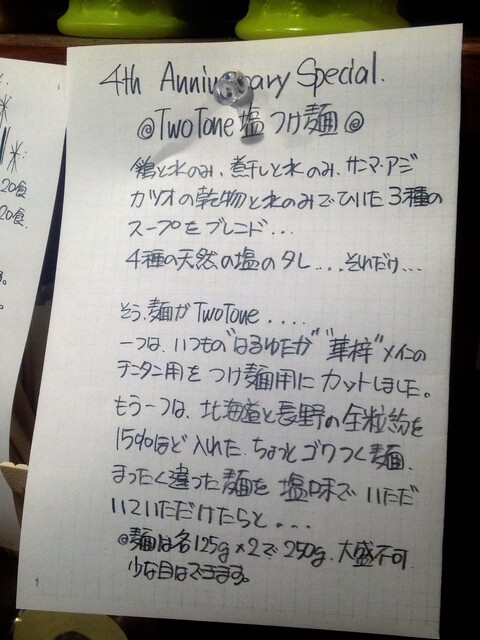 4th Anniversary Special.
@TwoTone 塩つけ麺@
鶏と水のみ、煮干しと水のみ、サンマ・アジ
カツオの乾物と水のみでひいた3種の
スープをブレンド...
4種の天然の塩のタレ....それだけ...
そう、麺がTwoTone ....
一つは、いつもの"はるゆたか""華梓"メインの
テンタン用をつけ麺用にカットしました。
もう一つは、北海道と長野の全粒粉を
15%ほど入れた、ちょっとゴワつく麺、
まったく違った麺を塩味でいただ
いていただけたらと...
@麺は各125g×2で250g、大盛不可
少な目はできます。
20食
20食